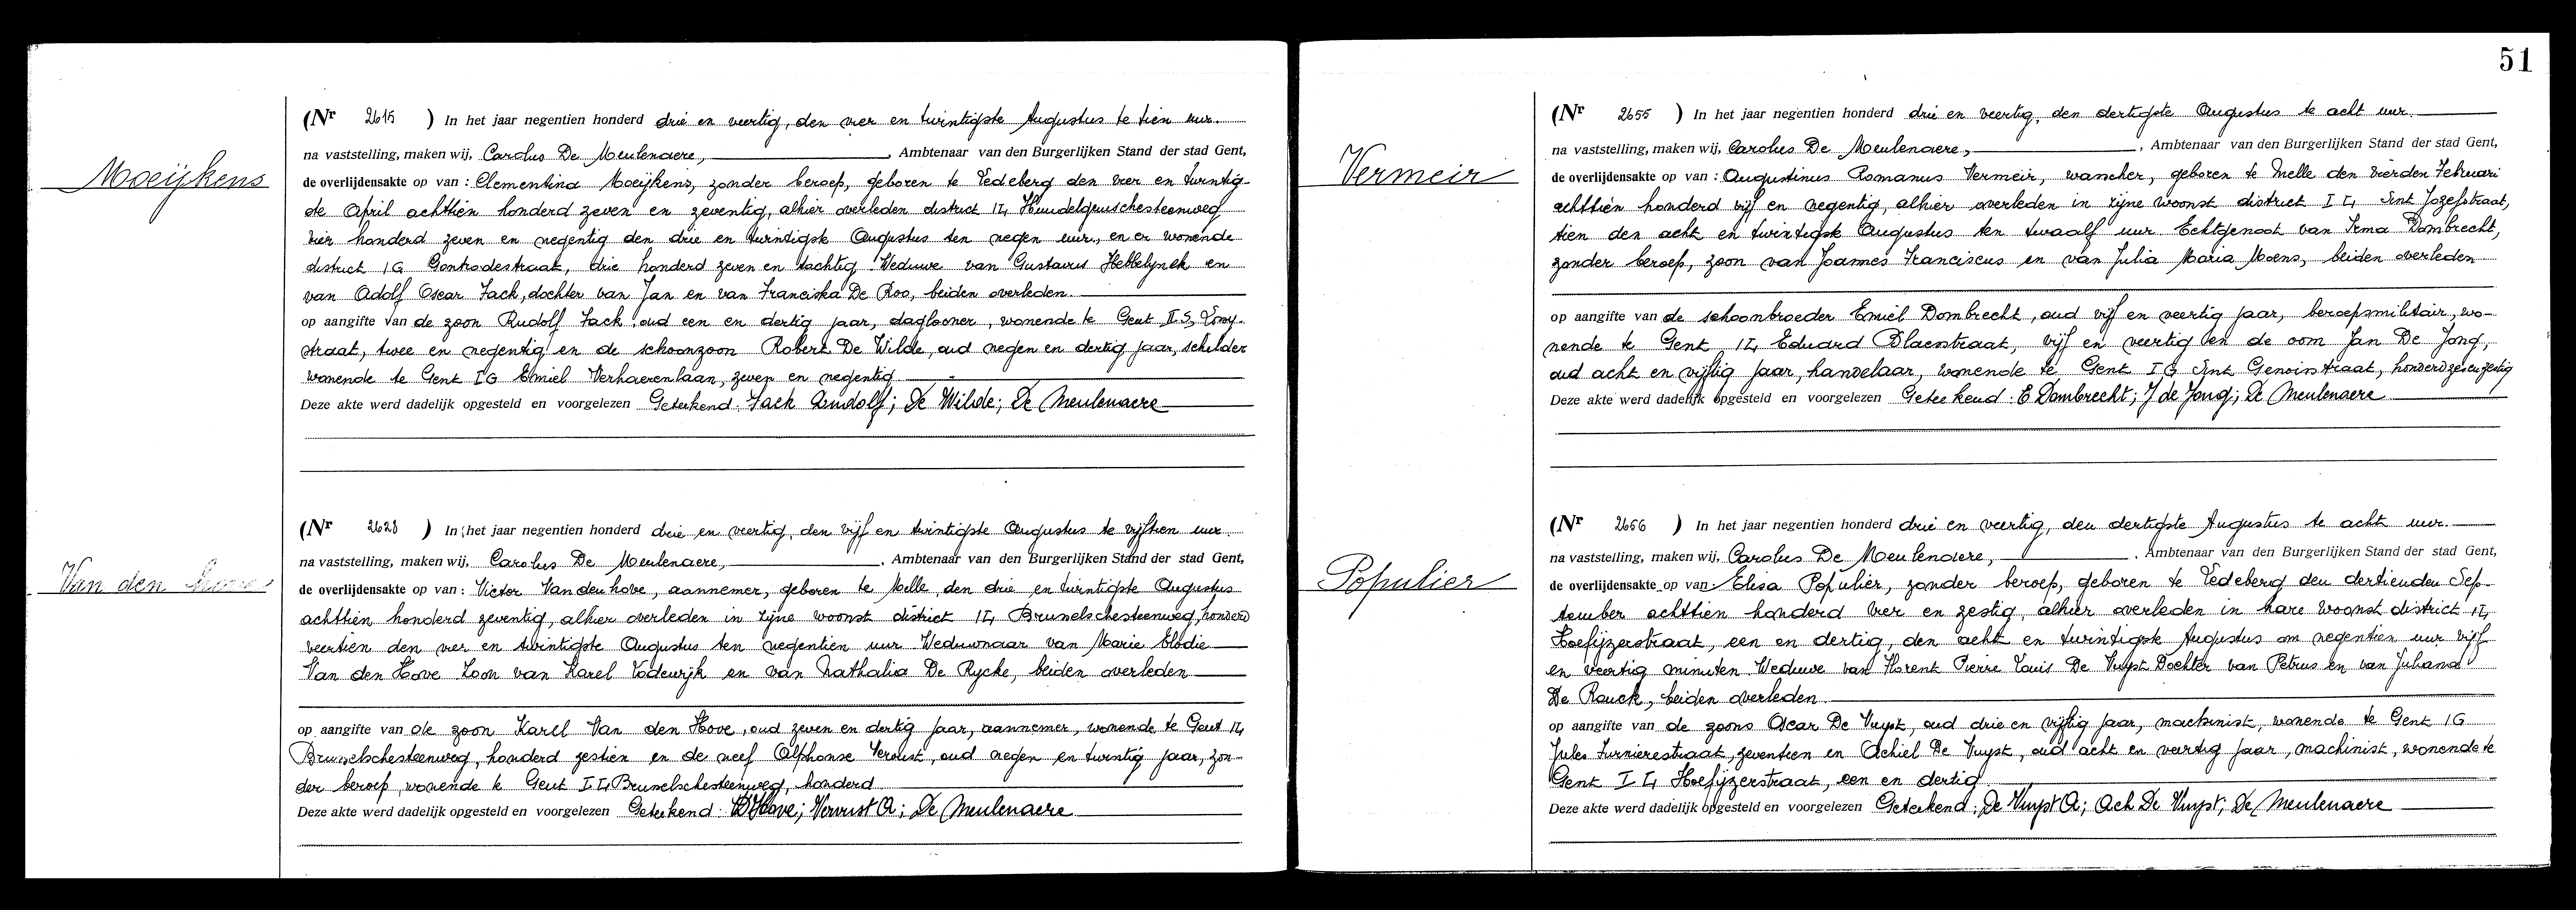 Moeijkens
(Nr 2615 ) In het jaar negentien honderd drie en veertig, den vier en twintigste Augustus te tien uur.
na vaststelling, maken wij, Carolus De Meulenaere, , Ambtenaar van den Burgerlijken Stand der stad Gent,
de overlijdensakte op van : Clementina Moeijkens, zonder beroep, geboren te Ledeberg den vier en twintig-
ste April achttien honderd zeven en zeventig, alhier overleden district I4
vier honderd zeven en negentig den drie en twintigste Augustus ten negen uur, en er wonende
district 1G Gontrodestraat, drie honderd zeven en tachtig Weduwe van Gustavus Hebbelynck en
van Adolf Oscar Jack, dochter van Jan en van Franciska De Roo, beiden overleden.
op aangifte van de zoon Rudolf Jack oud een en dertig jaar, daglooner, wonende te Gent
straat, twee en negentig en de schoonzoon Robert De Wilde, oud negen en dertig jaar, schilder
wonende te Gent IG Emiel Verhaerenlaan, zeven en negentig
Deze akte werd dadelijk opgesteld en voorgelezen Geteekend: Jack Rudolf; De Wilde; De Meulenaere
Van den hove
(Nr 2628 ) In het jaar negentien honderd drie en veertig, den vijf en twintigste Augustus te vijftien uur.
na vaststelling, maken wij, Carolus De Meulenaere, , Ambtenaar van den Burgerlijken Stand der stad Gent,
de overlijdensakte op van : Victor Van den hove, aannemer, geboren te Melle den drie en twintigste Augustus
achttien honderd zeventig, alhier overleden in zijne woonst district I4 Brusselschesteenweg, honderd
veertien den vier en twintigste Augustus ten negentien uur Weduwnaar van Marie Elodie
Van den Hove Zoon van Karel Lodewijk en van Nathalia De Rycke, beiden overleden
op aangifte van de zoon Karel Van den Hove, oud zeven en dertig jaar, aannemer, wonende te Gent I4
Brusselschesteenweg, honderd zestien en de neef Alphonse Vervust, oud negen en twintig jaar, zon-
der beroep, wonende te Gent I4 Brusselschesteenweg, honderd
Deze akte werd dadelijk opgesteld en voorgelezen Geteekend: VDHove; Vervust A; De Meulenaere
51
Vermeir
(Nr 2655 ) In het jaar negentien honderd drie en veertig, den dertigste Augustus te acht uur.
na vaststelling, maken wij, Carolus De Meulenaere, , Ambtenaar van den Burgerlijken Stand der stad Gent,
de overlijdensakte op van : Augustinus Romanus Vermeir, wascher, geboren te Melle den vierden Februari
achttien honderd vijf en negentig, alhier overleden in zijne woonst district I4 Sint Jozefstraat,
tien den acht en twintigste Augustus ten twaalf uur Echtgenoot van Irma Dombrecht,
zonder beroep, zoon van Joannes Franciscus en van Julia Maria Moens, beiden overleden
op aangifte van de schoonbroeder Emiel Dombrecht, oud vijf en veertig jaar, beroepsmilitair, wo-
nende te Gent I4 Eduard Blaesstraat, vijf en veertig en de oom Jan De Jong,
oud acht en vijftig jaar, handelaar, wonende te Gent IG Sint Genoisstraat,
Deze akte werd dadelijk opgesteld en voorgelezen Geteekend: E Dombrecht; J de Jong; De Meulenaere
Populier
(Nr 2656 ) In het jaar negentien honderd drie en veertig, den dertigste Augustus te acht uur.
na vaststelling, maken wij, Carolus De Meulenaere, , Ambtenaar van den Burgerlijken Stand der stad Gent,
de overlijdensakte op van : Elisa Populier, zonder beroep, geboren te Ledeberg den dertienden Sep-
tember achttien honderd vier en zestig, alhier overleden in hare woonst district I4
Hoefijzerstraat, een en dertig, den acht en twintigste Augustus om negentien uur vijf
en veertig minuten Weduwe van Florent Pierre Louis De Vuyst Dochter van Petrus en van Juliana
De Rouck, beiden overleden
op aangifte van de zoons Oscar De Vuyst, oud drie en vijftig jaar, machinist, wonende te Gent 1G
Jules straat, zeventien en Achiel De Vuyst, oud acht en veertig jaar, machinist, wonende te
Gent I4 Hoefijzerstraat, een en dertig
Deze akte werd dadelijk opgesteld en voorgelezen Geteekend: De Vuyst A; Ach De Vuyst; De Meulenaere